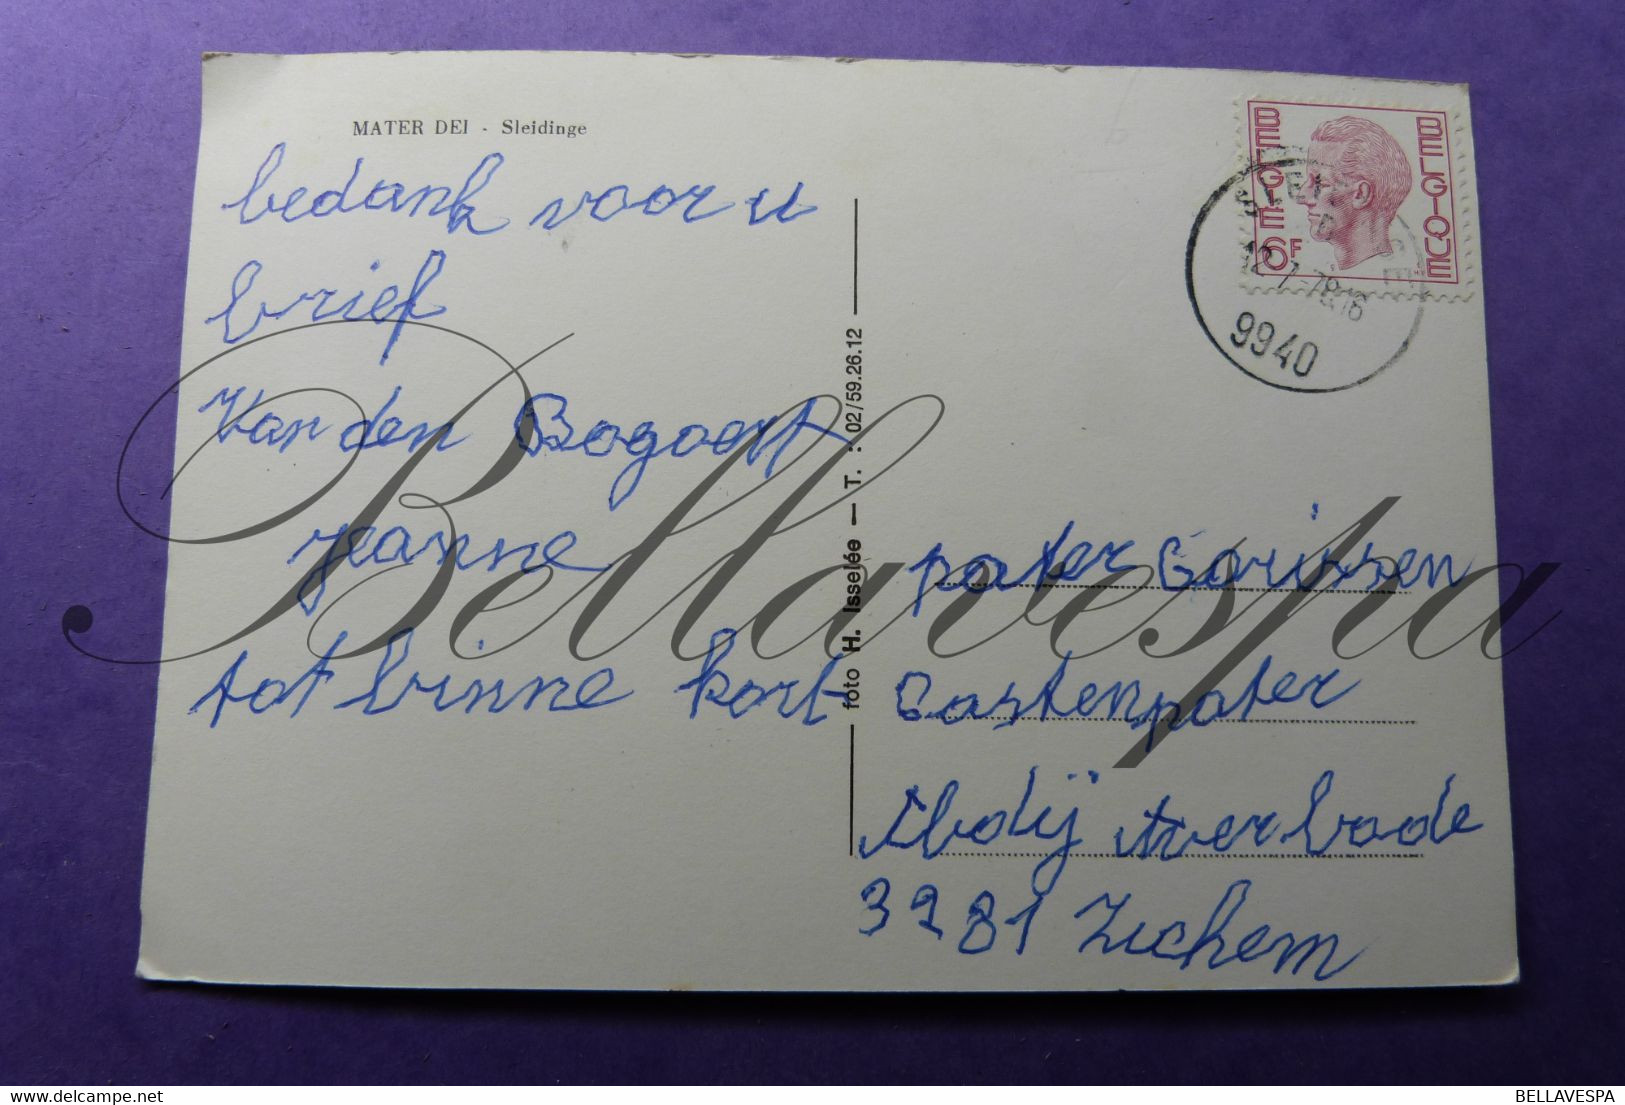 MATER DEI - Sleidinge
bedank voor u
brief
Van den Bogaert
jeanne
tot binne kort
foto H. Isselée — T. : 02/59.26.12
BELGIE BELGIQUE
6F
12-7-78 16
9940
pater Gorissen
Gastenpater
Abdij Averbode
3281 Zichem
Bellavespa
BELLAVESPA